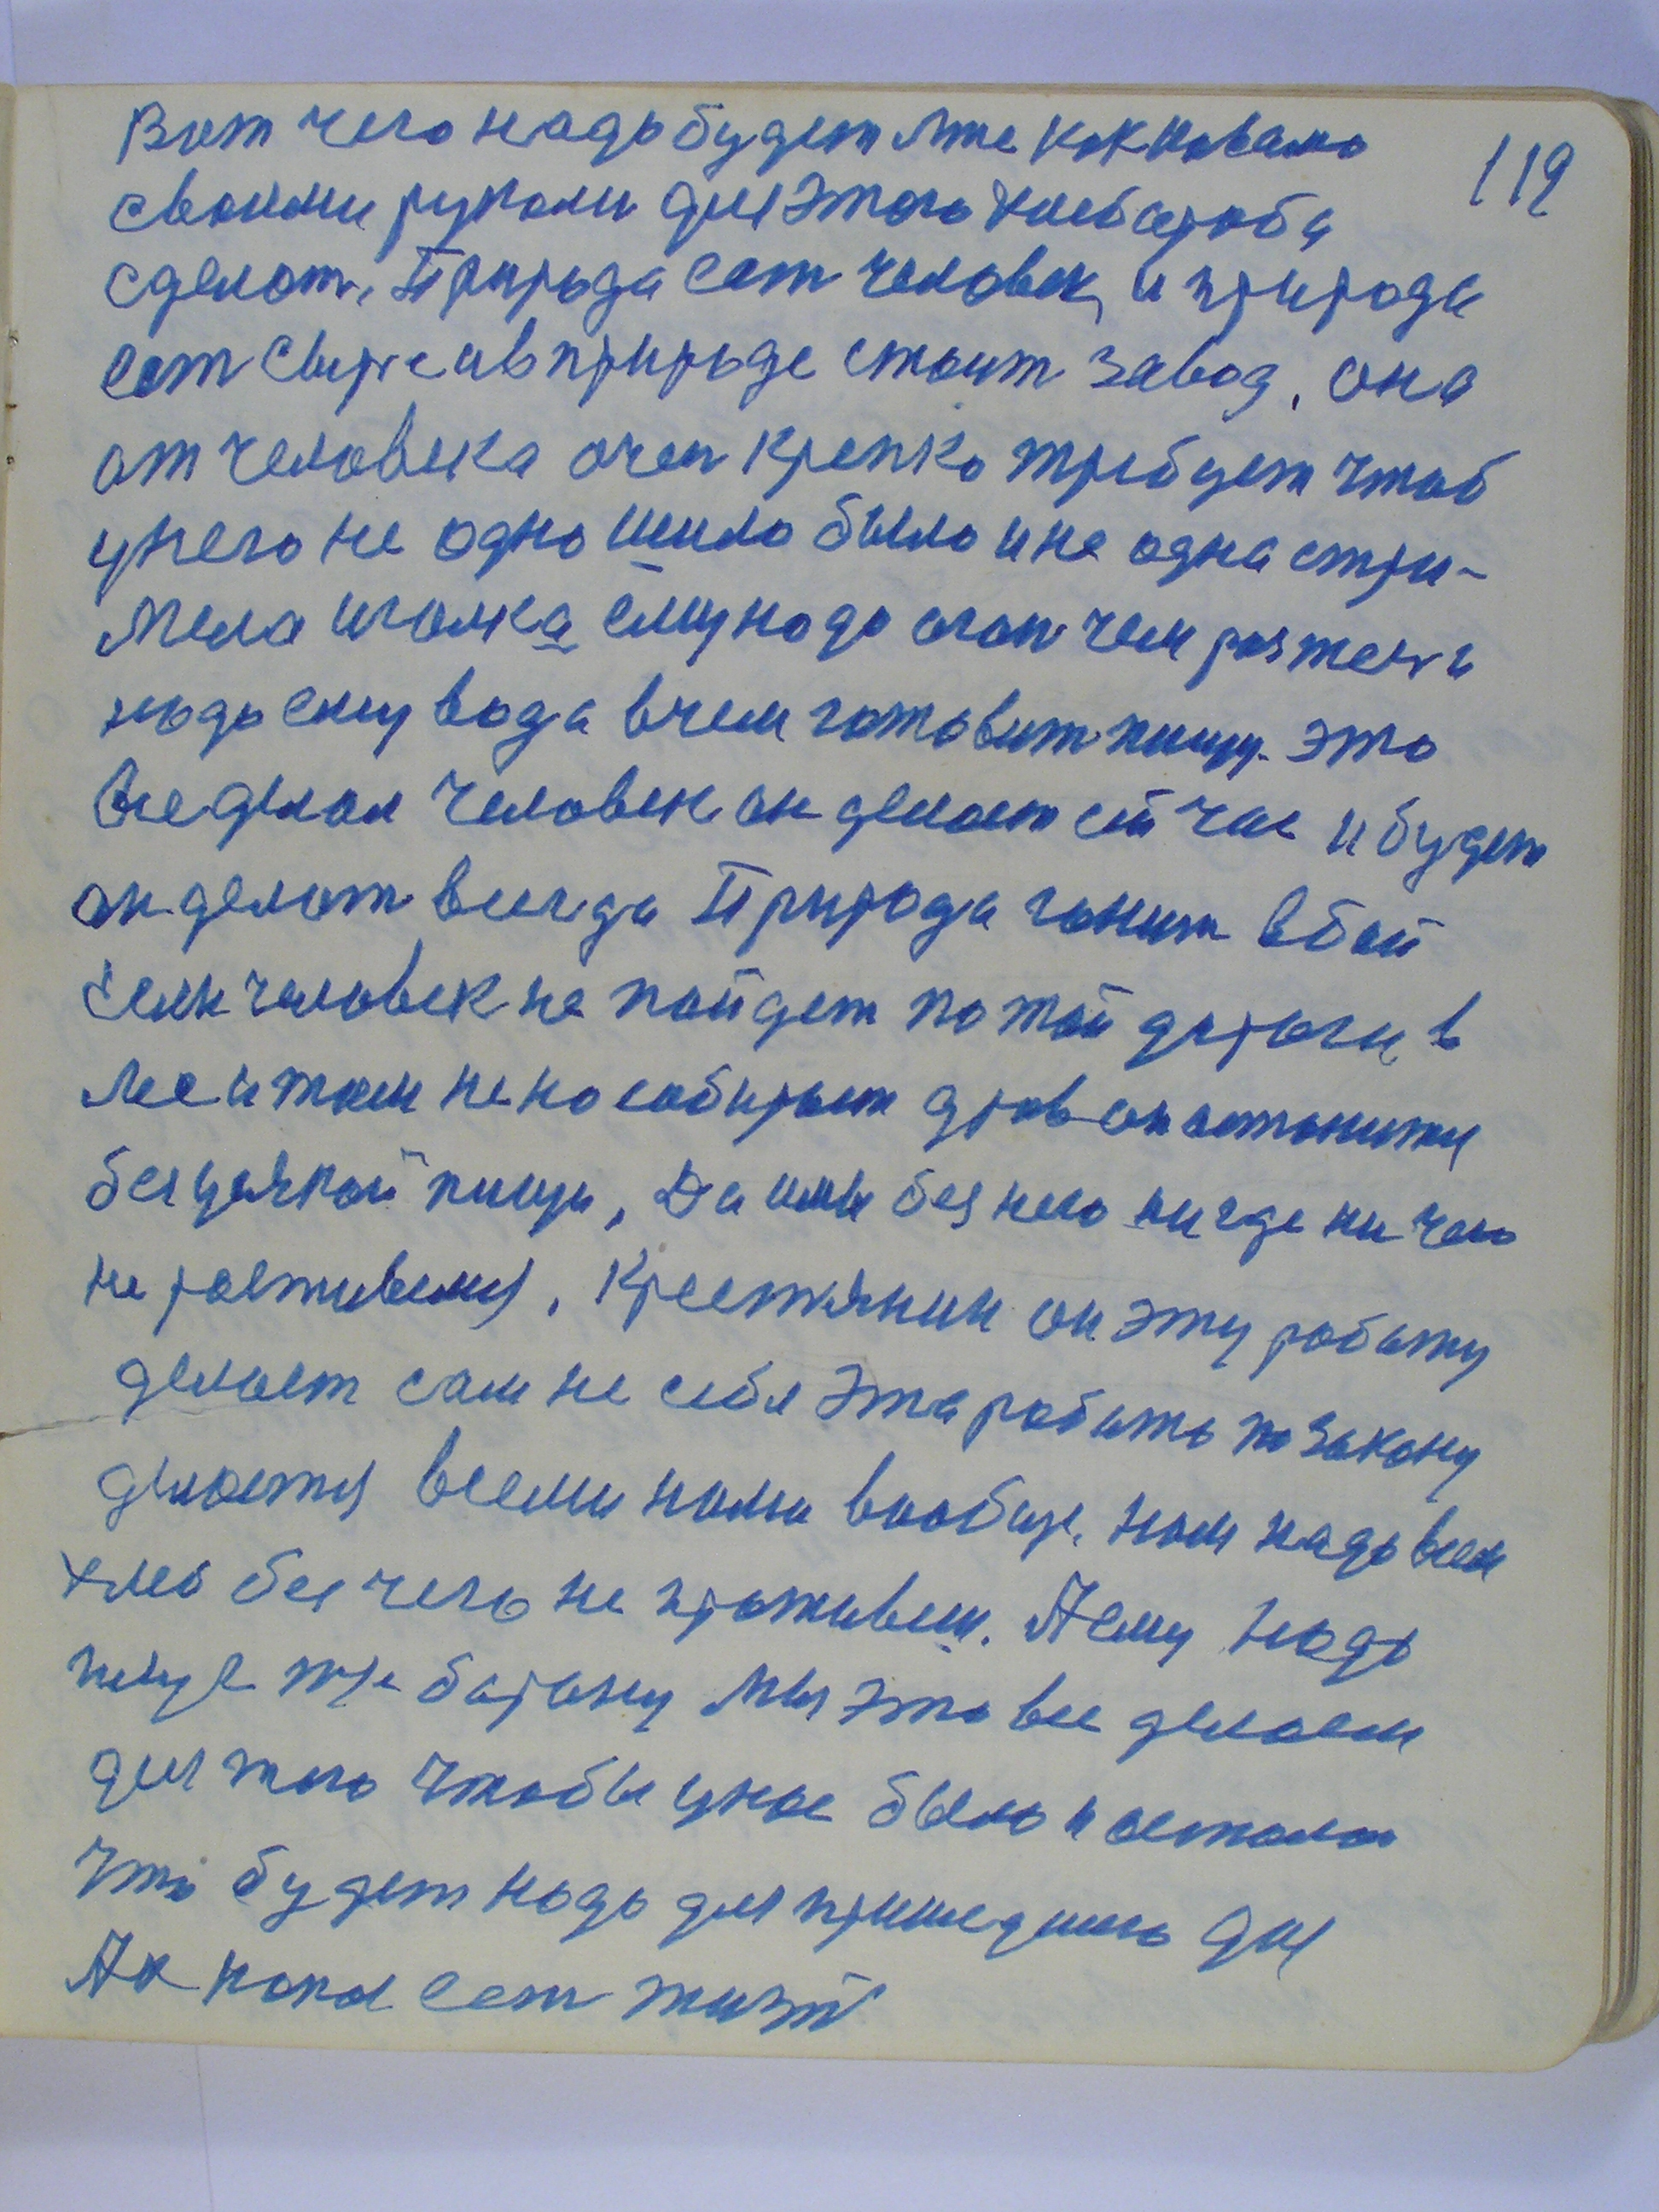 119
Вот чего надо будет мне как
своими руками для этого хлебороба
сделат, Природа ест человек, и природа
ест и в природе стоит завод, она
от человека очен крепко требует чтоб
у него не одно шило было и не одна стри-
мела иголка ему надо огон чем разжеч и
надо ему вода в чем готовит пищу. это
все делал человек он делает сй час и будет
он делат всегда Природа гонит в бой
Если человек не пойдет по той дороги в
лес и там не насобирает дров он останится
без усякой пищи, Да или без него ни где ни чего
не
Крестянин он эту работу
делает сам не себя эта работа по закону
делается всеми нами вообще. нам надо всем
хлеб без чего не проживеш. А ему надо
барану мы это все делаем
для того чтобы у нас было и осталос
Что будет надо для пришедшего дня
А пока ест